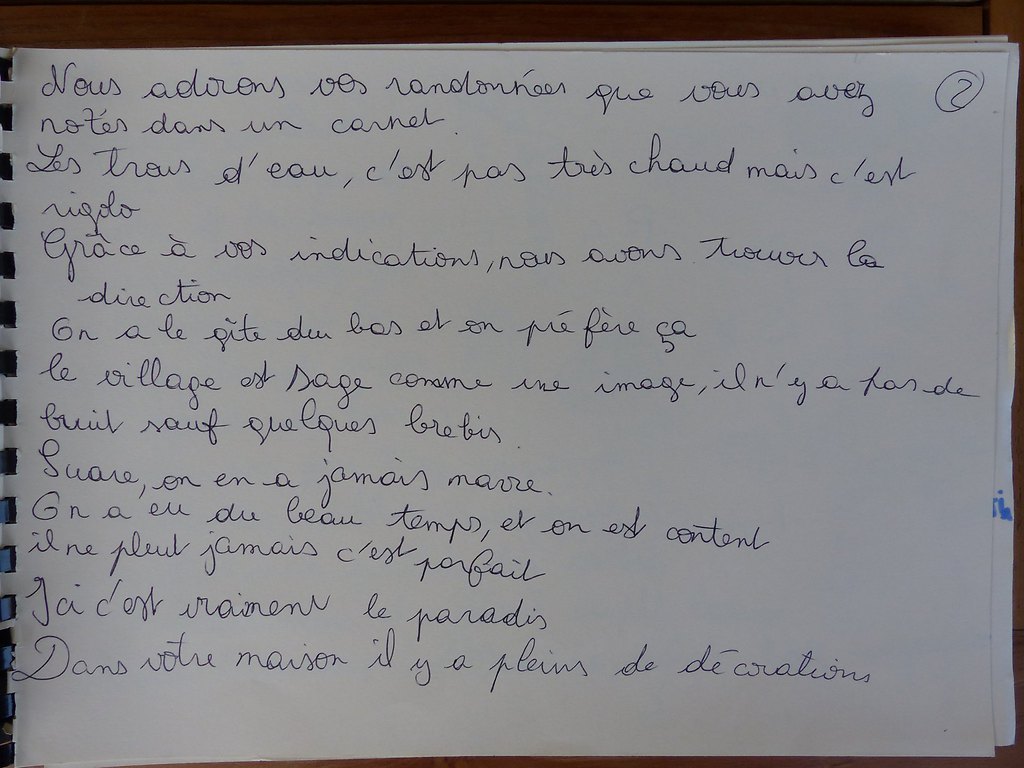 Nous adorons vos randonnées que vous avez ②
notés dans un carnet.
Les trous d'eau, c'est pas très chaud mais c'est
rigolo
Grâce à vos indications, nous avons trouver la
direction
On a le gîte du bas et on préfère ça
le village est sage comme une image, il n'y a pas de
bruit sauf quelques brebis.
Suare, on en a jamais marre.
On a eu du beau temps, et on est content
il ne pleut jamais c'est parfait
Ici c'est vraiment le paradis
Dans votre maison il y a pleins de décorations